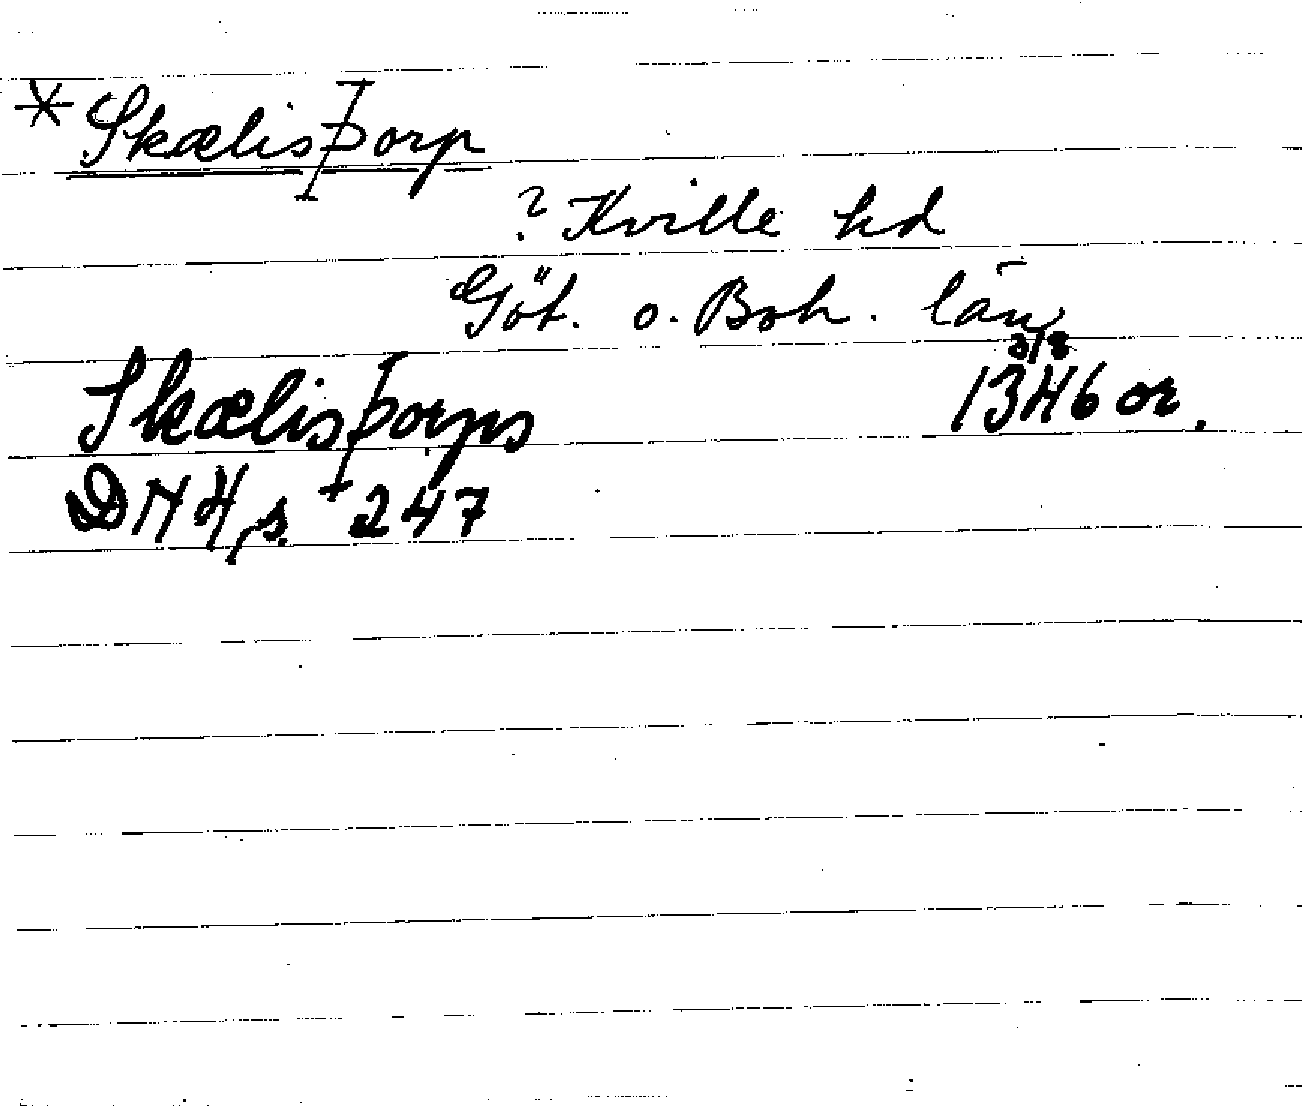 *Skælisþorp
? Kville hd
Göt. o. Boh. län
Skælisþorps 3/8 1346 or.
DN 4, s. 247